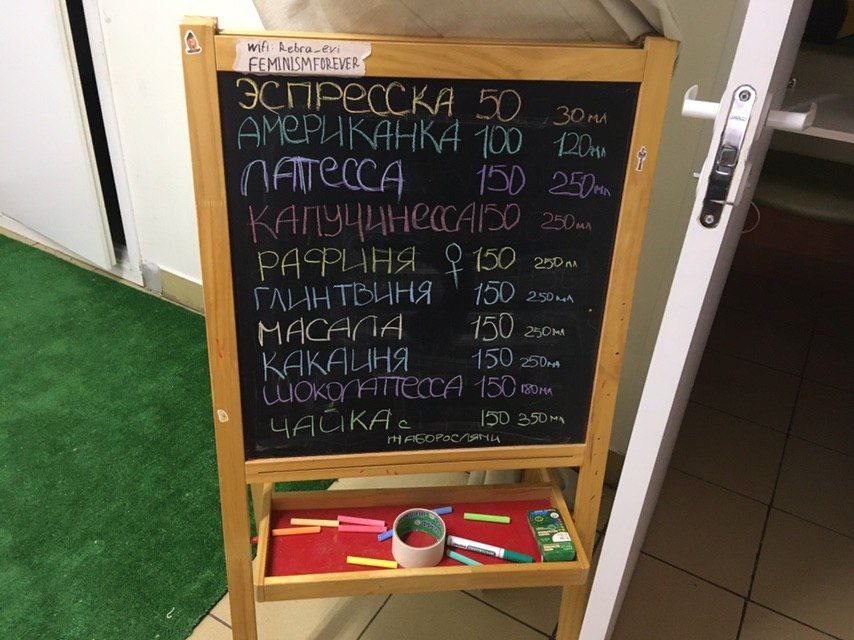 Wifi: Rebra_evi
FEMINISMFOREVER
ЭСПРЕССКА 50 30 мл
АМЕРИКАНКА 100 120 мл
ЛАТТЕССА 150 250 мл
КАПУЧИНЕССА 150 250 мл
РАФИНЯ ♀ 150 250 мл
ГЛИНТВИНЯ 150 250 мл
МАСАЛА 150 250 мл
КАКАИНЯ 150 250 мл
ШОКОЛАТТЕССА 150 180 мл
ЧАЙКА с 150 350 мл
жаборослями